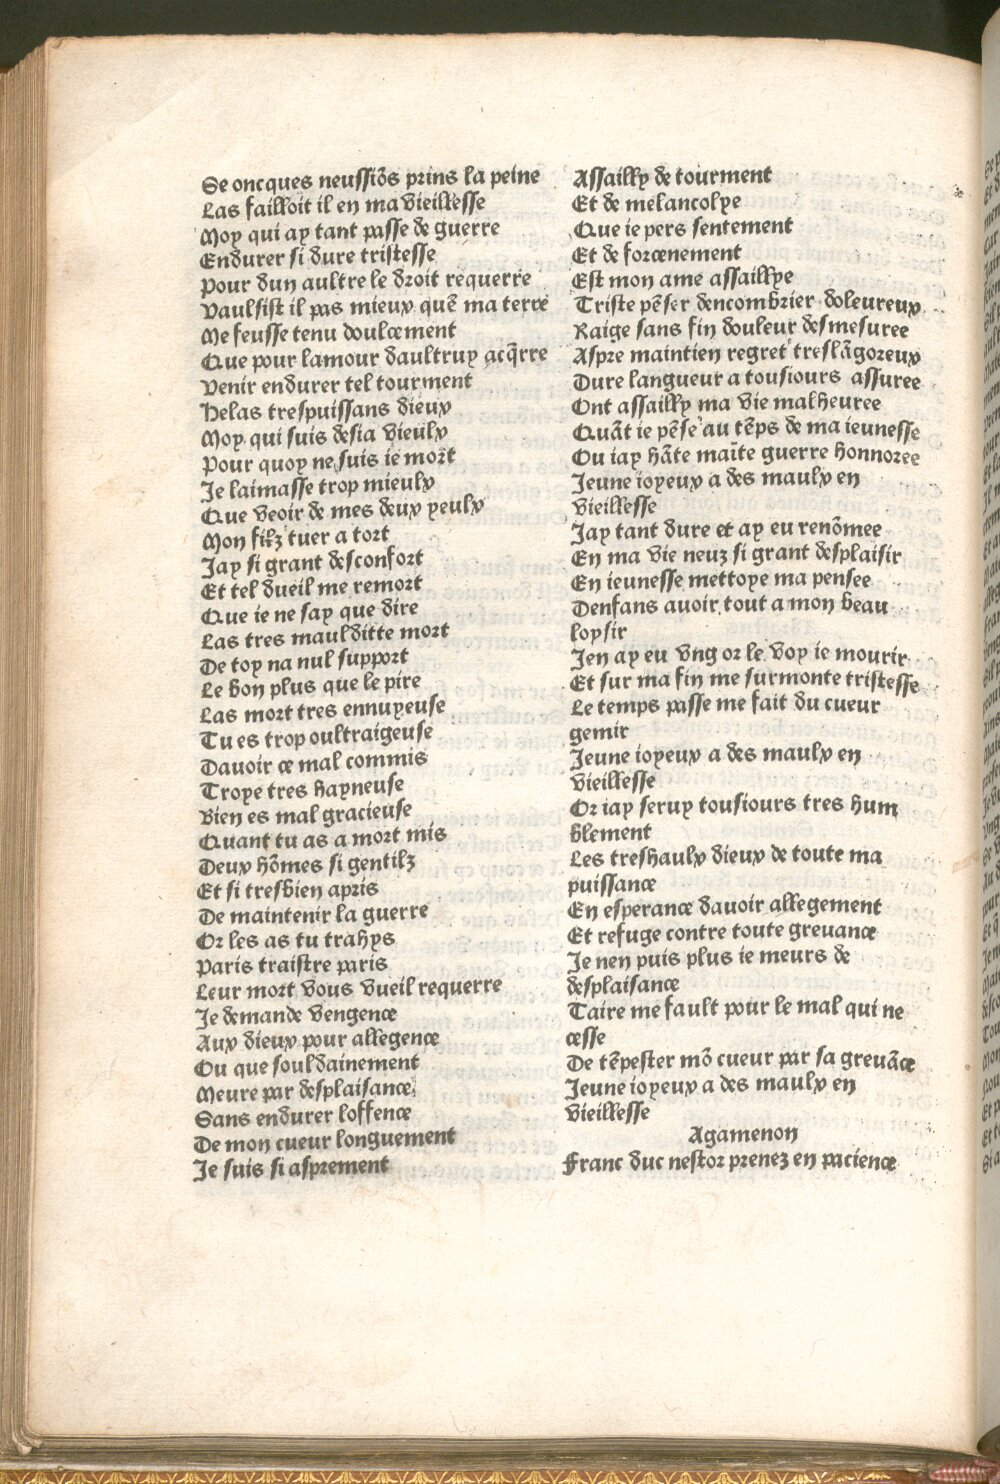 Se oncques neussiõs prins la peine
Las failloit il en ma vieillesse
Moy qui ay tant passe de guerre
Endurer si dure tristesse
Pour dun aultre le droit requerre
Vaulsist il pas mieux quẽ ma terre
Me feusse tenu doulcement
Que pour lamour daultruy acq̃rre
Venir endurer tel tourment
Helas trespuissans dieux
Moy qui suis desia vieulx
Pour quoy ne suis ie mort
Je laimasse trop mieulx
Que veoir de mes deux yeulx
Mon filz tuer a tort
Jay si grant desconfort
Et tel dueil me remort
Que ie ne say que dire
Las tres maulditte mort
De toy na nul support
Le bon plus que le pire
Las mort tres ennuyeuse
Tu es trop oultraigeuse
Davoir ce mal commis
Troye tres hayneuse
Bien es mal gracieuse
Quant tu as a mort mis
Deux hõmes si gentilz
Et si tresbien apris
De maintenir la guerre
Or les as tu trahys
Paris traistre paris
Leur mort vous vueil requerre
Je demande vengence
Aux dieux pour allegence
Ou que souldainement
Meure par desplaisance
Sans endurer loffence
De mon cueur longuement
Je suis si asprement
Assailly de tourment
Et de melancolye
Que ie pers sentement
Et de forcenement
Est mon ame assaillye
Triste pẽser dencombrier doleureux
Raige sans fin douleur desmesuree
Aspre maintien regret treslãgoreux
Dure langueur a tousiours assuree
Ont assailly ma vie malheuree
Quãt ie pẽse au tẽps de ma ieunesse
Ou iay hãte maĩte guerre honnoree
Jeune ioyeux a des maulx en
vieillesse
Jay tant dure et ay eu renõmee
En ma vie neuz si grant desplaisir
En ieunesse mettoye ma pensee
Denfans auoir tout a mon beau
loysir
Jen ay eu vng or le voy ie mourir
Et sur ma fin me surmonte tristesse
Le temps passe me fait du cueur
gemir
Jeune ioyeux a des maulx en
vieillesse
Or iay seruy tousiours tres hum
blement
Les treshaulx dieux de toute ma
puissance
En esperance dauoir allegement
Et refuge contre toute greuance
Je nen puis plus ie meurs de
desplaisance
Taire me fault pour le mal qui ne
cesse
De tẽpester mõ cueur par sa greuãce
Jeune ioyeux a des maulx en
vieillesse
Agamenon
Franc duc nestor prenez en pacience